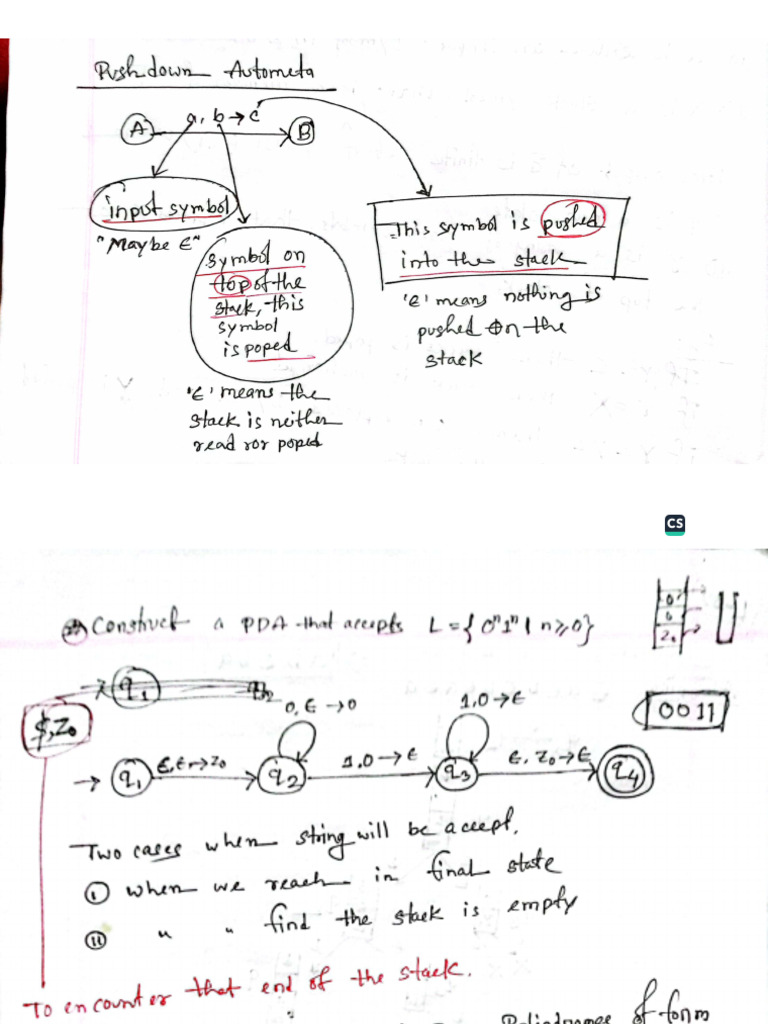 Pushdown Autometa
a, b → c
A
B
input symbol
"Maybe ε"
symbol on
top of the
stack, this
symbol
is poped
'ε' means the
stack is neither
read nor poped
This symbol is pushed
into the stack
'ε' means nothing is
pushed on the
stack
CS
Construct a PDA that accepts L = { 0ⁿ1ⁿ | n ≥ 0}
0
0
Z₀
q₁
$, Z₀
0, ε → 0
1, 0 → ε
0011
q₁
ε, ε → Z₀
q₂
1, 0 → ε
q₃
ε, Z₀ → ε
q₄
Two cases when string will be accept.
(i) when we reach in final state
(ii) " " find the stack is empty
To encounter that end of the stack.
of form